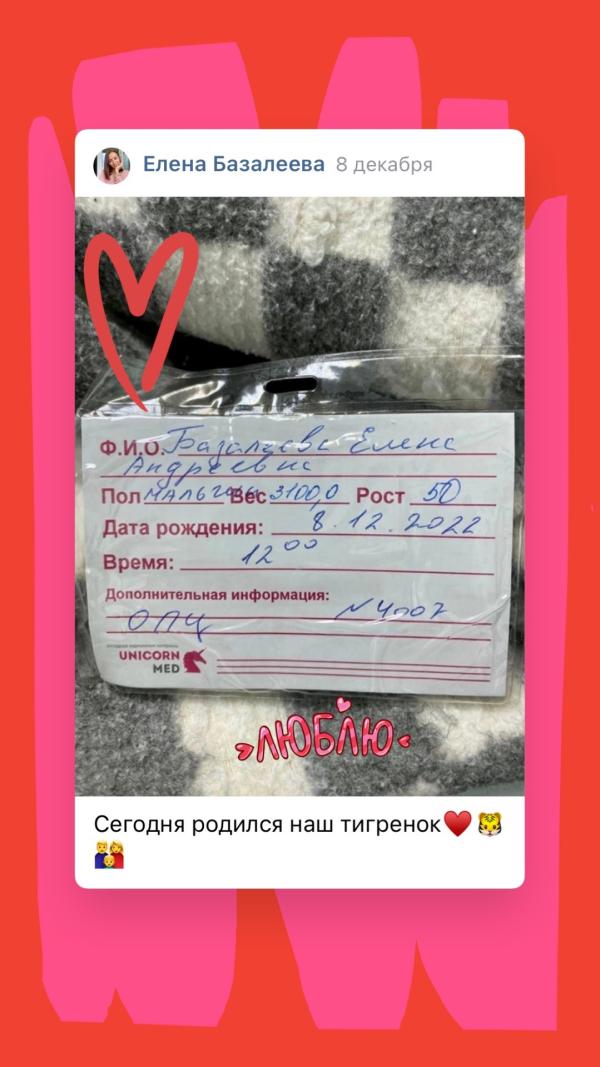 Елена Базалеева 8 декабря
Ф.И.О. Базалеева Елена
Андреевна
Пол мальчик Вес 3100,0 Рост 50
Дата рождения: 8.12.2022
Время: 12⁰⁰
Дополнительная информация:
N 4007
ОПЦ
UNICORN
MED
ЛЮБЛЮ
Сегодня родился наш тигренок♥️🐯
👨‍👩‍👦